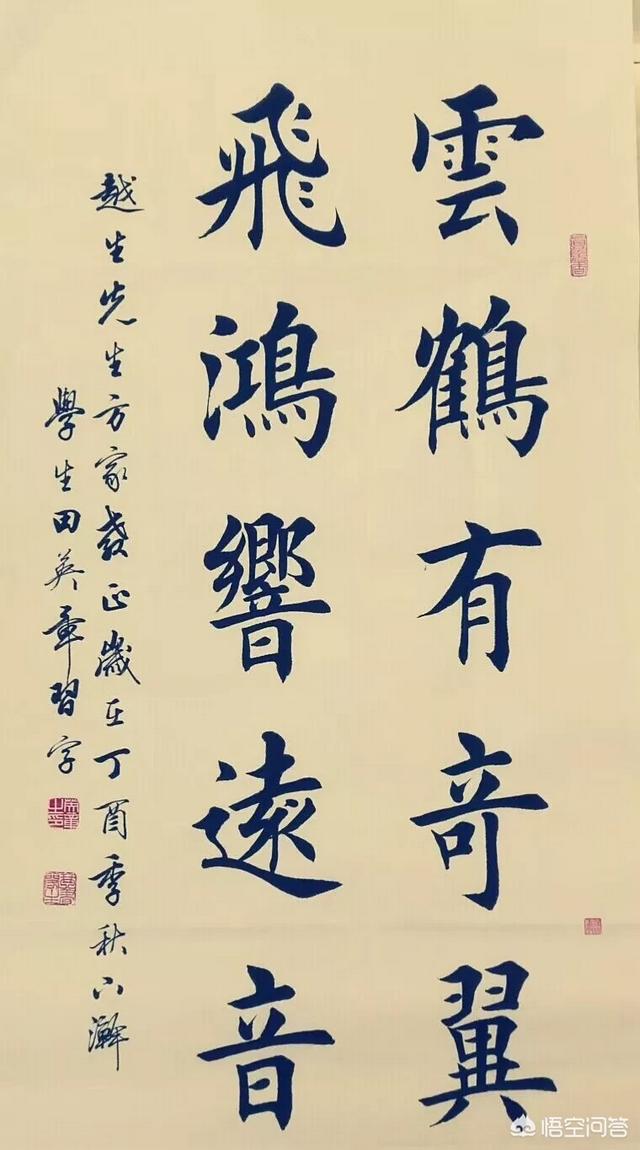 雲鶴有竒翼
飛鴻響遠音
越生先生方家教正歲在丁酉季秋下澣
學生田英章習字
悟空问答